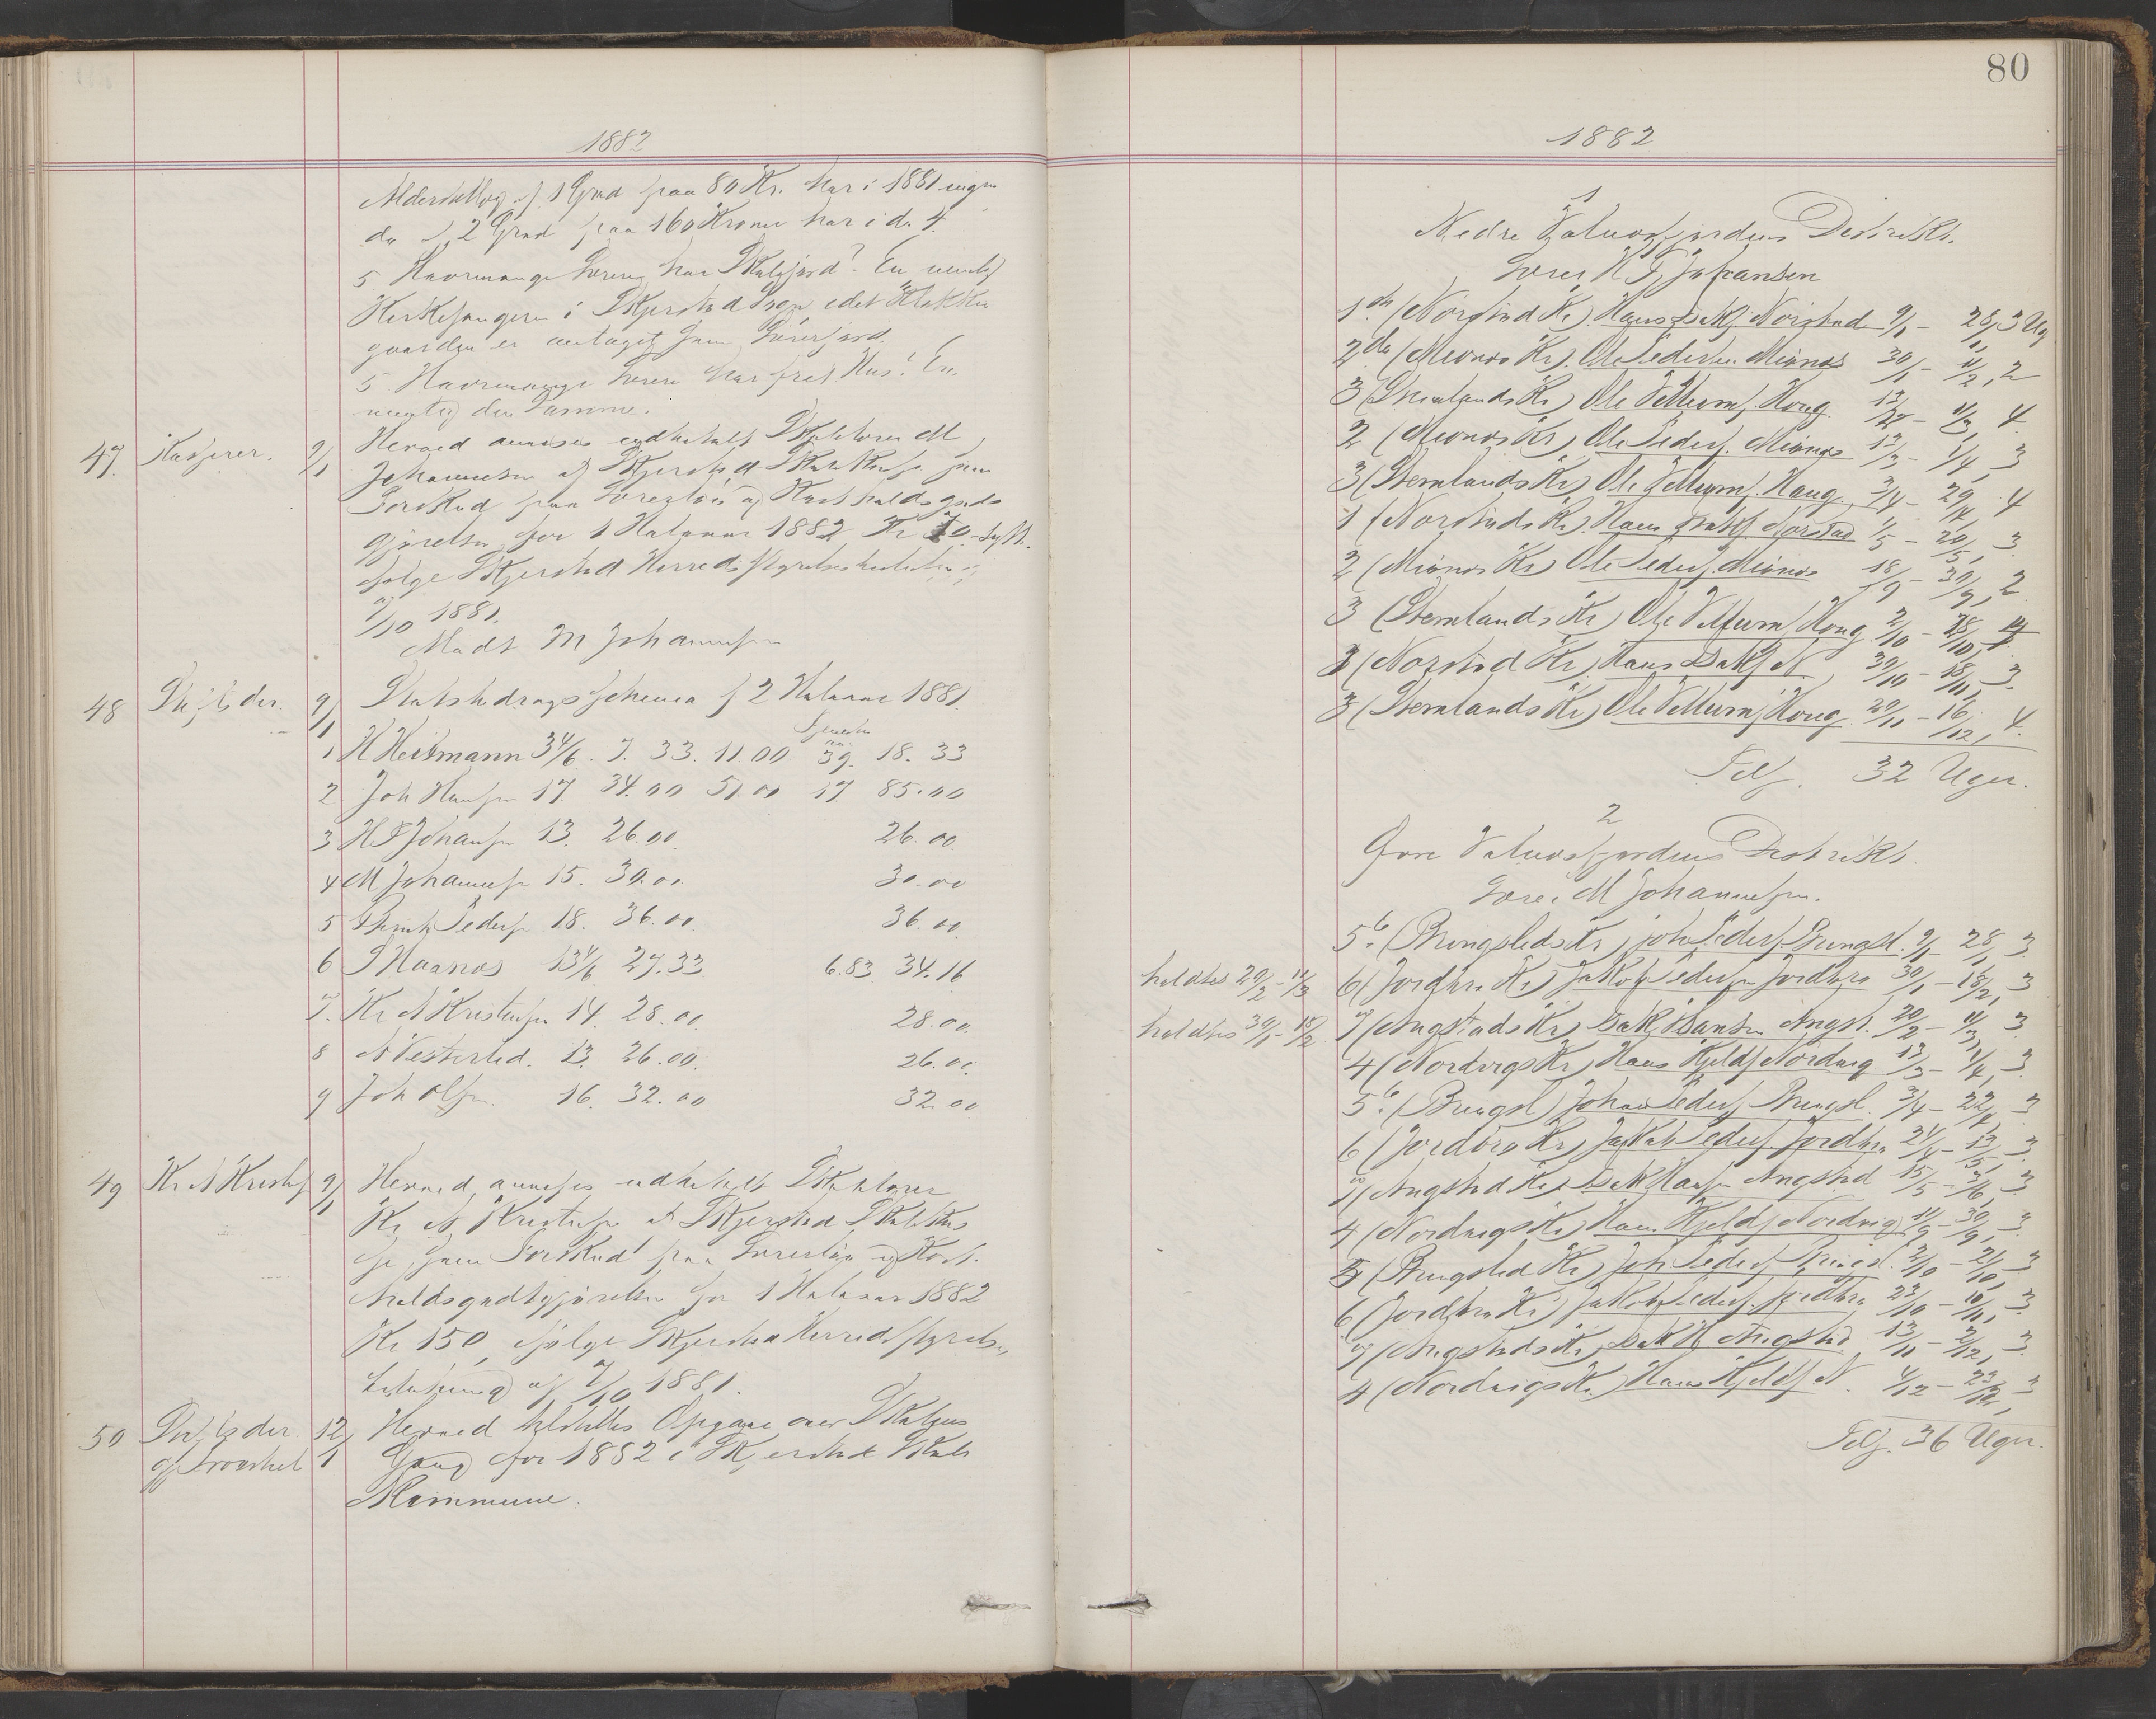 1882
Alderstillæg af 1 Grad paa 80 Kr. har i 1881 ingen
do af 2 Grad paa 160 Kroner har i do 4.
5 Hvormange Lærere har Skolejord? En nemlig
Kirkesangeren i Skjerstad Sogn, idet Klokker
gaarden er antaget som Lærerjord.
5 Hvormange Lærere har frit Hus? En.
nemlig den samme.
47. Kasserer. 9/1 Herved anvises endbetalt Skolelærer M
Johannesen af Skjerstad Skolekasse som
Forskud paa Lærerløn og Kostholdsgodt-
gjørelse for 1 Halvaar 1882 Kr 70 - Sytti.
ifølge Skjerstad Herredsstyrelsesbeslutning
7/10 1881.
Modt M Johannesen
48 Stiftsdir. 9/1 Statsbidragsschema f 2 Halvaar 1881.
1 H Heitmann 34/6. 7. 33. 11.00 39. 18. 33
2 Joh Hansen 17. 34.00 51.00 17 85.00
3 H F Johansen 13. 26.00. 26.00.
4 M Johannesen 15. 30.00. 30.00
5 Pedersen 18. 36.00. 36.00.
6 Maanos 13 4/6 27.33 6.83 34.16
7. Kr A Kristensen 14. 28.00. 28.00.
8 A Vesterlid. 13. 26.00. 26.00.
9 Joh Olsen. 16. 32.00 32.00
49 Kr A Kristens 9/1 Herved anvises endbetalt Skolelærer
Kr A Kristensen af Skjerstad Skolekas
se som Forskud paa Lærerløn og Kost-
holdsgodtgjørelse for 1 Halvaar 1882
Kr 150, ifølge Skjerstad Herredsstyrelses
beslutning af 7/10 1881.
50 Stiftsdir. 12/1 Herved tilstilles Opgave over Skolens
og Provstiet Gang for 1882 i Skjerstad Skole
Kommune.
80
1882
1
Nedre Valnesfjordens Distrikt.
Lærer H F Johansen
1ste (Norstad Kr) Hans Isaks Norstad 9/1 - 28/1, 3 Ug
2den (Mionos Kr). Ole Pedersen Mionos 30/1 - 11/2, 2
3 (Stemlands Kr) Ole Vellum, Haug. 13/2 - 11/3, 4
2 (Mionos Kr) Ole Peders. Mionos 13/3 - 1/4, 3
3 (Stemlands Kr) Ole Vellum, Haug. 3/4 - 29/4, 4
1 (Norstads Kr) Hans Isaks Norstad 1/5 - 20/5, 3
2 (Mionos Kr) Ole Peders. Mionos 18/9 - 30/9, 2
3 (Stemlands Kr) Ole Vellum, Haug 2/10 - 28/10, 4
1 (Norstad Kr) Hans Isaks N. 30/10 - 18/11, 3.
3 (Stemlands Kr) Ole Vellum, Haug 20/11 - 16/12, 4.
Tils. 32 Uger.
2
Øvre Valnesfjordens Distrikt.
Lærer M Johannesen.
5te (Bringslids Kr) Joh Peders. Bringsl. 9/1 - 28/1, 3
holdtes 20/2 - 11/3 6 (Jordbro Kr) Jakob Pedersen Jordbro 30/1 - 18/2, 3
holdtes 30/1 - 18/2 7 (Angstads Kr) Isak Hansen Angst. 20/2 - 11/3, 3
4 (Nordvigs Kr) Hans Kjelds Nordvig 13/3 - 1/4, 3
5te (Bringsl) Johan Peders. Bringsl. 3/4 - 22/4, 3
6 (Jordbro Kr) Jakob Peders. Jordbro 24/4 - 13/5, 3.
7 (Angstad Kr) Isak Hansen Angstad 15/5 - 3/6, 3
4 (Nordvigs Kr) Hans Kjelds Nordvig 11/9 - 30/9, 3
5 (Bringslid Kr) Joh Peders. Bringsl. 2/10 - 21/10, 3
6 (Jordbro Kr) Jakob Peders. Jordbro 23/10 - 11/11, 3.
7 (Angstads Kr) Isak H. Angstad. 13/11 - 2/12, 3.
4 (Nordvigs Kr.) Hans Kjelds N. 4/12 - 23/12, 3
Tils. 36 Uger.